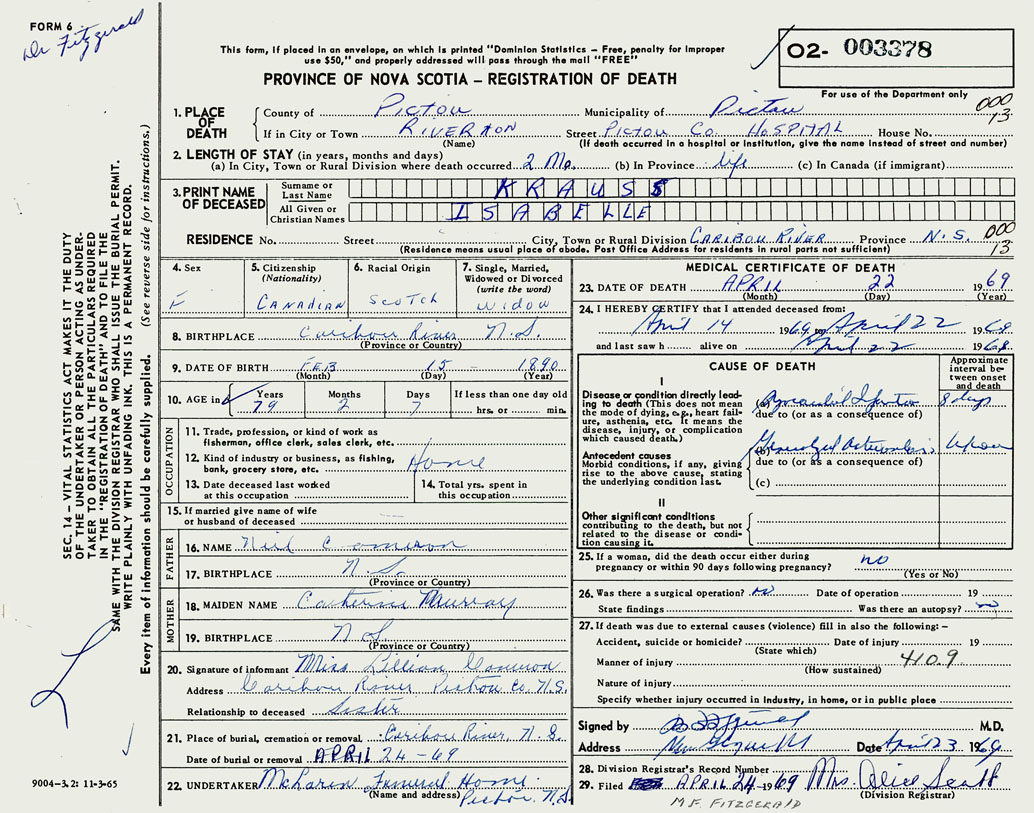 FORM 6
Dr Fitzgerald
This form, if placed in an envelope, on which is printed "Dominion Statistics – Free, penalty for improper
use $50," and properly addressed will pass through the mail "FREE"
PROVINCE OF NOVA SCOTIA – REGISTRATION OF DEATH
02- 003378
For use of the Department only
000
13
1. PLACE OF DEATH
County of Pictou Municipality of Pictou
If in City or Town RIVERTON Street PICTOU CO. HOSPITAL House No.
(Name) (If death occurred in a hospital or institution, give the name instead of street and number)
2. LENGTH OF STAY (in years, months and days)
(a) In City, Town or Rural Division where death occurred 2 Mo. (b) In Province life (c) In Canada (if immigrant)
3. PRINT NAME OF DECEASED
Surname or Last Name KRAUSS
All Given or Christian Names ISABELLE
RESIDENCE No. Street City, Town or Rural Division CARIBOU RIVER Province N.S.
(Residence means usual place of abode. Post Office Address for residents in rural parts not sufficient)
000
13
4. Sex F
5. Citizenship (Nationality) CANADIAN
6. Racial Origin SCOTCH
7. Single, Married, Widowed or Divorced (write the word) WIDOW
8. BIRTHPLACE Caribou River, N.S.
(Province or Country)
9. DATE OF BIRTH FEB 15 1890
(Month) (Day) (Year)
10. AGE in Years 79 Months 2 Days 7 If less than one day old hrs. or min.
OCCUPATION
11. Trade, profession, or kind of work as
fisherman, office clerk, sales clerk, etc.
12. Kind of industry or business, as fishing,
bank, grocery store, etc. Home
13. Date deceased last worked
at this occupation
14. Total yrs. spent in
this occupation
15. If married give name of wife
or husband of deceased
FATHER
16. NAME Neil Cameron
17. BIRTHPLACE N.S.
(Province or Country)
MOTHER
18. MAIDEN NAME Catherine Murray
19. BIRTHPLACE N S
(Province or Country)
20. Signature of informant Miss Lillian Cameron
Address Caribou River Pictou Co. N.S.
Relationship to deceased Sister
21. Place of burial, cremation or removal Caribou River, N.S.
Date of burial or removal APRIL 24-69
22. UNDERTAKER McLaren Funeral Home
(Name and address) Pictou N.S.
MEDICAL CERTIFICATE OF DEATH
23. DATE OF DEATH APRIL 22 1969
(Month) (Day) (Year)
24. I HEREBY CERTIFY that I attended deceased from:
April 14 1969 to April 22 1969
and last saw h alive on April 22 1969.
CAUSE OF DEATH
Approximate interval between onset and death
I
Disease or condition directly leading to death (This does not mean the mode of dying, e.g., heart failure, asthenia, etc. It means the disease, injury, or complication which caused death.)
(a) Myocardial Infarction 8 days
due to (or as a consequence of)
Antecedent causes
Morbid conditions, if any, giving rise to the above cause, stating the underlying condition last.
(b) Generalized
due to (or as a consequence of)
(c)
II
Other significant conditions contributing to the death, but not related to the disease or condition causing it.
25. If a woman, did the death occur either during
pregnancy or within 90 days following pregnancy? no
(Yes or No)
26. Was there a surgical operation? no Date of operation 19
State findings Was there an autopsy? no
27. If death was due to external causes (violence) fill in also the following: –
Accident, suicide or homicide? Date of injury 19
(State which)
Manner of injury 410.9
(How sustained)
Nature of injury
Specify whether injury occurred in industry, in home, or in public place
Signed by M.D.
Address New Glasgow Date April 23 1969
28. Division Registrar's Record Number
29. Filed APRIL 24-1969 Mrs. Alice Scott
(Division Registrar)
M.F. FITZGERALD
SEC. 14 – VITAL STATISTICS ACT MAKES IT THE DUTY
OF THE UNDERTAKER OR PERSON ACTING AS UNDER-
TAKER TO OBTAIN ALL THE PARTICULARS REQUIRED
IN THE "REGISTRATION OF DEATH" AND TO FILE THE
SAME WITH THE DIVISION REGISTRAR WHO SHALL ISSUE THE BURIAL PERMIT.
WRITE PLAINLY WITH UNFADING INK. THIS IS A PERMANENT RECORD.
Every item of information should be carefully supplied. (See reverse side for instructions.)
9004-3.2: 11-3-65